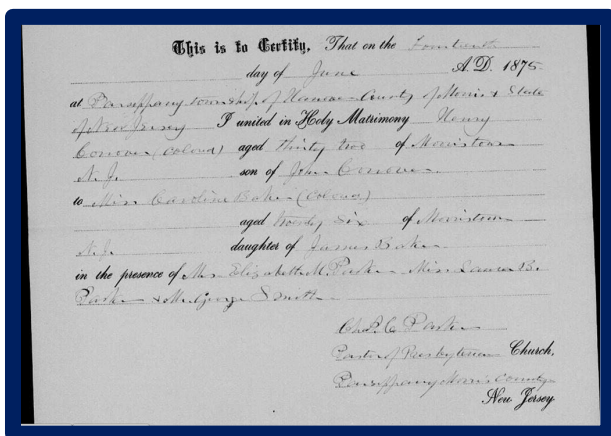 This is to Certify, That on the Fourteenth
day of June A.D. 1875.
at Parsippany township of Hanover County of Morris & State
of New Jersey I united in Holy Matrimony Henry
Conover (Colored) aged thirty two of Morristown
N. J. son of John Conover
to Miss Caroline Baker (Colored)
aged twenty Six of Morristown
N. J. daughter of James Baker
in the presence of Mrs Elizabeth M. Parker Miss Laura B.
Parker & Mr. George Smith
C. Parker
Pastor of Presbyterian Church,
Parsippany Morris County
New Jersey